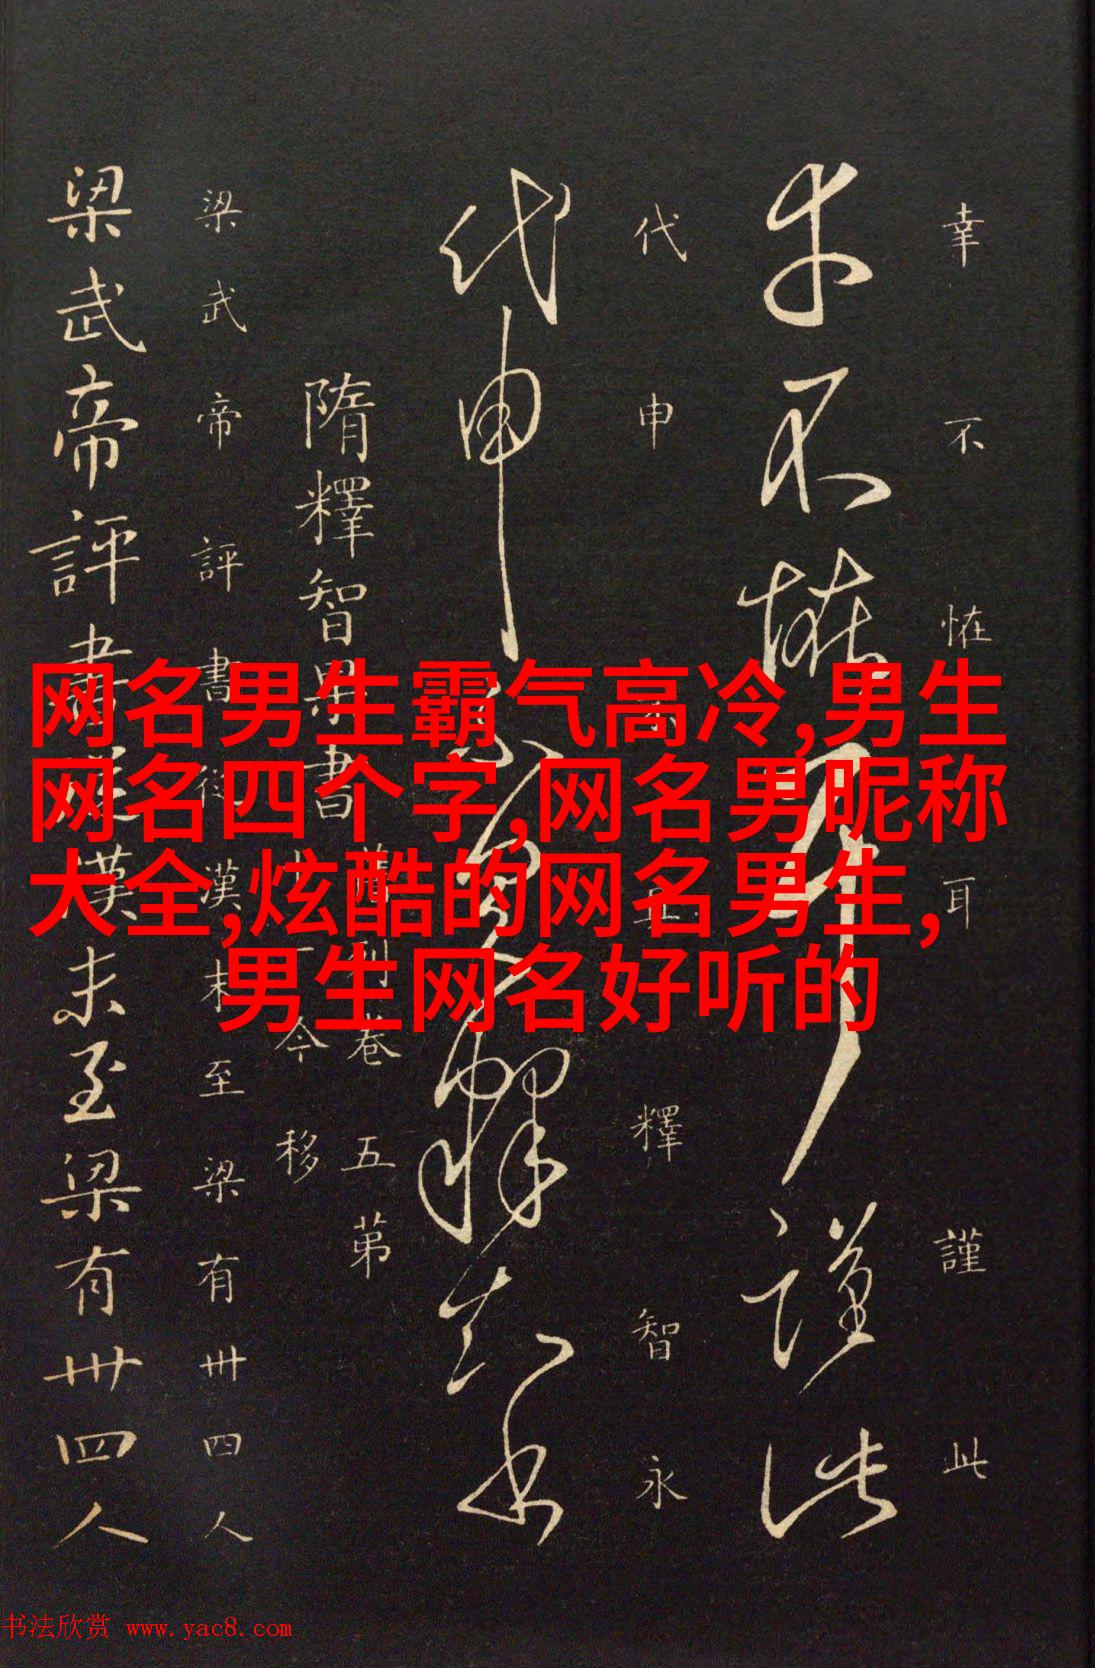 幸不怪耳謹此
代申
釋智永
代申
釋智永
隋釋智果書
卷五第
今移
梁武帝評書從漢末至梁有卌四人
梁武帝評書從漢末至梁有卌四人
网名男生霸气高冷,男生
网名四个字,网名男昵称
大全,炫酷的网名男生,
男生网名好听的
书法欣赏 www.yac8.com